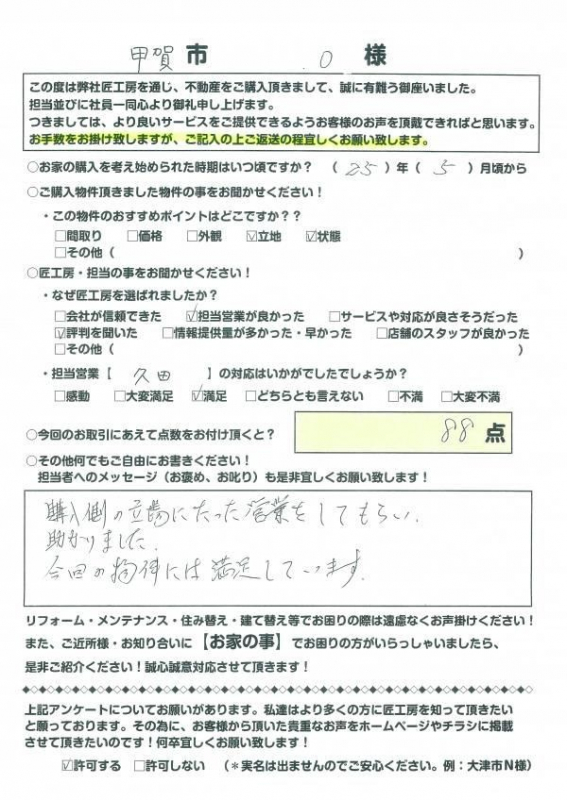 甲賀市 .O 様
この度は弊社匠工房を通じ、不動産をご購入頂きまして、誠に有難う御座いました。
担当並びに社員一同心より御礼申し上げます。
つきましては、より良いサービスをご提供できるようお客様のお声を頂戴できればと思います。
お手数をお掛け致しますが、ご記入の上ご返送の程宜しくお願い致します。
○お家の購入を考え始められた時期はいつ頃ですか？（25）年（5）月頃から
○ご購入物件頂きました物件の事をお聞かせください！
・この物件のおすすめポイントはどこですか？？
□間取り □価格 □外観 ☑立地 ☑状態
□その他（ ）
○匠工房・担当の事をお聞かせください！
・なぜ匠工房を選ばれましたか？
□会社が信頼できた ☑担当営業が良かった □サービスや対応が良さそうだった
☑評判を聞いた □情報提供量が多かった・早かった □店舗のスタッフが良かった
□その他（ ）
・担当営業【久田】の対応はいかがでしたでしょうか？
□感動 □大変満足 ☑満足 □どちらとも言えない □不満 □大変不満
○今回のお取引にあえて点数をお付け頂くと？ 88点
○その他何でもご自由にお書きください！
担当者へのメッセージ（お褒め、お叱り）も是非宜しくお願い致します！
購入側の立場にたった営業をしてもらい、
助かりました。
今回の物件には満足しています。
リフォーム・メンテナンス・住み替え・建て替え等でお困りの際は遠慮なくお声掛けください！
また、ご近所様・お知り合いに【お家の事】でお困りの方がいらっしゃいましたら、
是非ご紹介ください！誠心誠意対応させて頂きます！
上記アンケートについてお願いがあります。私達はより多くの方に匠工房を知って頂きたい
と願っております。その為に、お客様から頂いた貴重なお声をホームページやチラシに掲載
させて頂きたいのです！何卒宜しくお願い致します！
☑許可する □許可しない （＊実名は出ませんのでご安心ください。例：大津市N様）